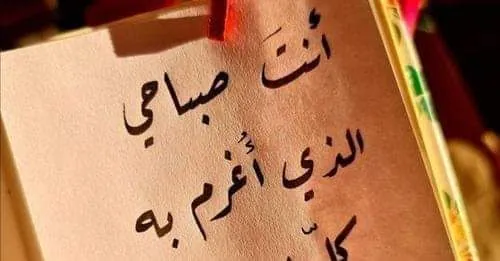 أنتَ صباحي
الذي أُغرم به
كلّ